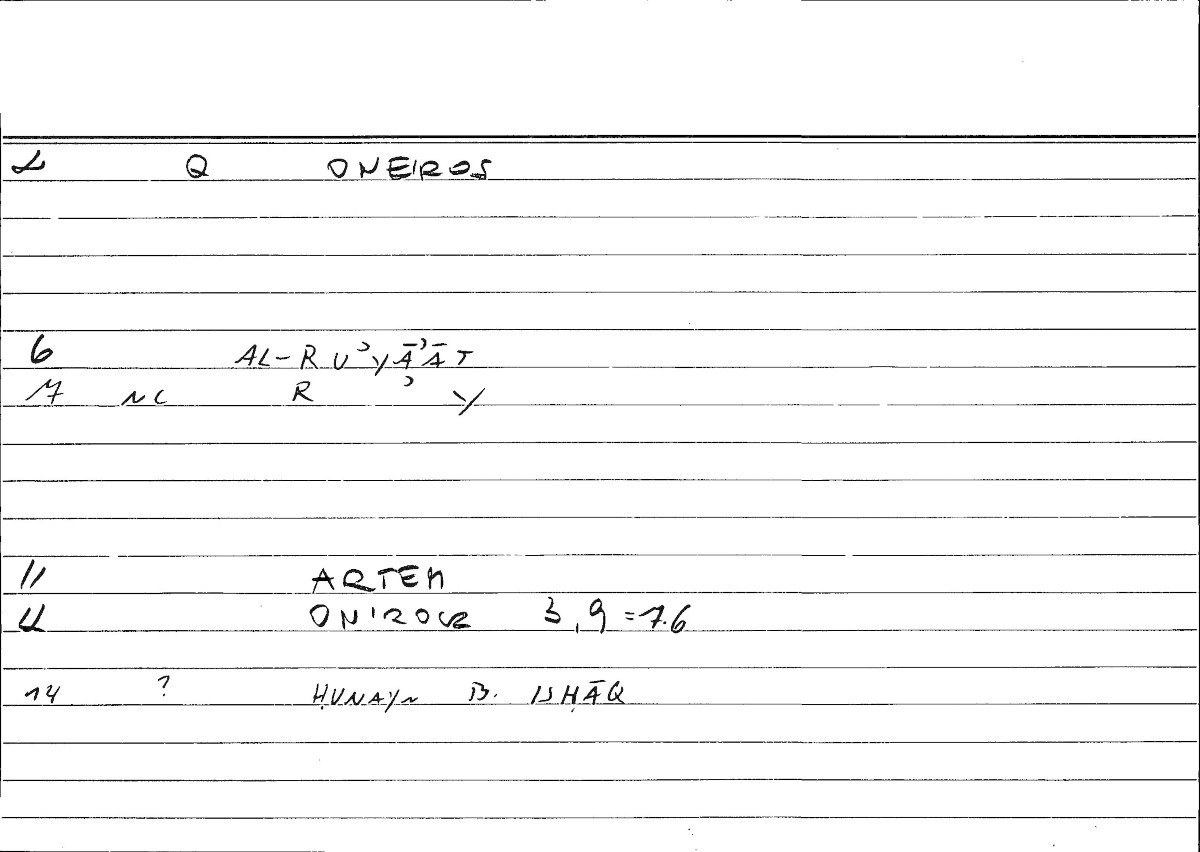 2 Q ONEIROS
6 AL-RUʾYĀʾĀT
7 NC R ʾ Y
11 ARTEM
12 ONIROCR 3,9 = 7.6
14 ? ḤUNAYN B. ISḤĀQ